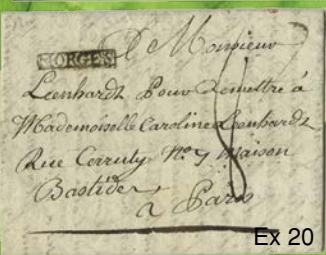 MORGES A Monsieur
Leenhardt Pour Remettre à
Mademoiselle Caroline Leenhardt
Rue Cerruty No. 7 Maison
Bastide
à Paris
8
Ex 20